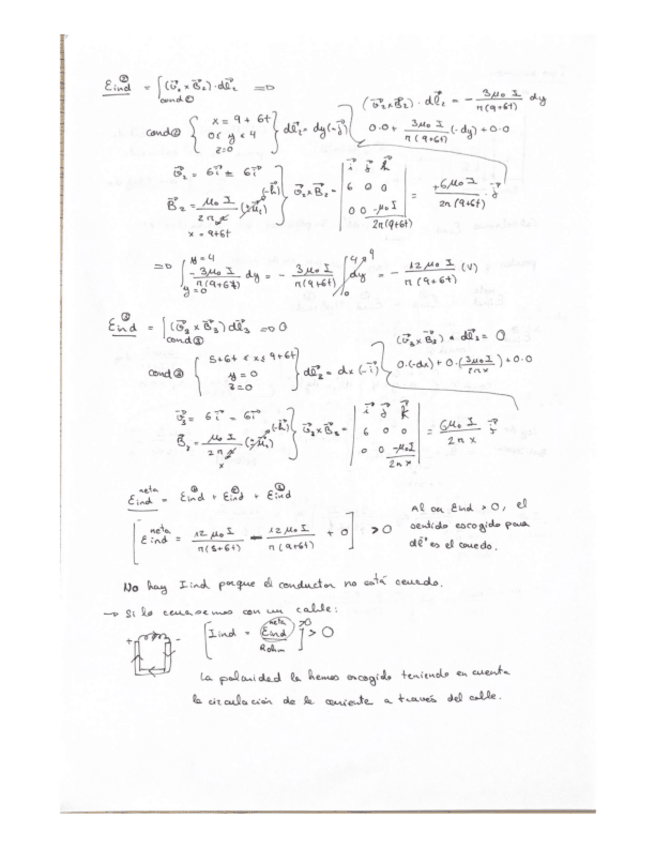 Eind ② = ∫cond② (v⃗₂ × B⃗₂) · dl⃗₂ =>
cond② { x = 9 + 6t
0 ≤ y ≤ 4
z = 0 } dl⃗₂ = dy(-j⃗)
(v⃗₂ × B⃗₂) · dl⃗₂ = - 3μ₀ I / π(9+6t) dy
0·0 + 3μ₀ I / π(9+6t) (-dy) + 0·0
v⃗₂ = 6i⃗ = 6i⃗
B⃗₂ = μ₀ I / 2π x (-k⃗)
x = 9+6t
v⃗₂ × B⃗₂ = | i⃗ j⃗ k⃗
6 0 0
0 0 -μ₀ I / 2π(9+6t) | = +6μ₀ I / 2π(9+6t) · j⃗
=> ∫ y=0 y=4 - 3μ₀ I / π(9+6t) dy = - 3μ₀ I / π(9+6t) ∫₀⁴ dy = - 12μ₀ I / π(9+6t) (V)
Eind ③ = ∫cond③ (v⃗₃ × B⃗₃) dl⃗₃ => 0
cond③ { 5+6t ≤ x ≤ 9+6t
y = 0
z = 0 } dl⃗₃ = dx (-i⃗)
(v⃗₃ × B⃗₃) · dl⃗₃ = 0
0·(-dx) + 0·(3μ₀ I / 2πx) + 0·0
v⃗₃ = 6i⃗ = 6i⃗
B⃗₃ = μ₀ I / 2π x (-k⃗)
v⃗₃ × B⃗₃ = | i⃗ j⃗ k⃗
6 0 0
0 0 -μ₀I / 2πx | = 6μ₀ I / 2π x j⃗
Eind neta = Eind ① + Eind ② + Eind ③
[ Eind neta = 12 μ₀ I / π(5+6t) - 12 μ₀ I / π(9+6t) + 0 ] > 0
Al ser Eind > 0, el
sentido escogido para
dl⃗ es el correcto.
No hay Iind porque el conductor no está cerrado.
→ Si lo cerrásemos con un cable:
+ -
[ Iind = Eind neta / Rohm ] > 0
>0
La polaridad la hemos escogido teniendo en cuenta
la circulación de la corriente a través del cable.